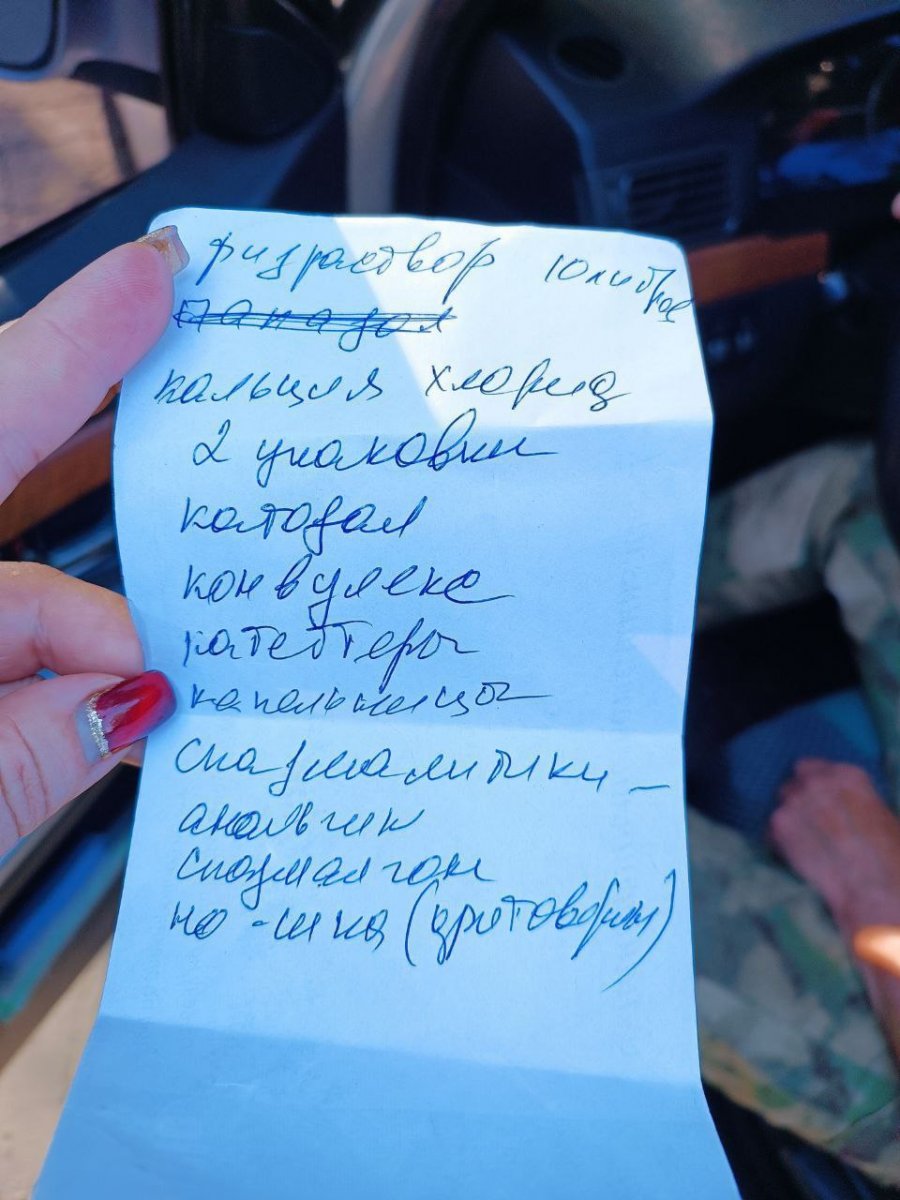 физраствор 10 литров
панадол
кальция хлорид
2 упаковки
катодал
конвулекс
катетеры
капельницы
спазмалитики -
анальгин
спазмалгон
но-шпа (дротоверин)